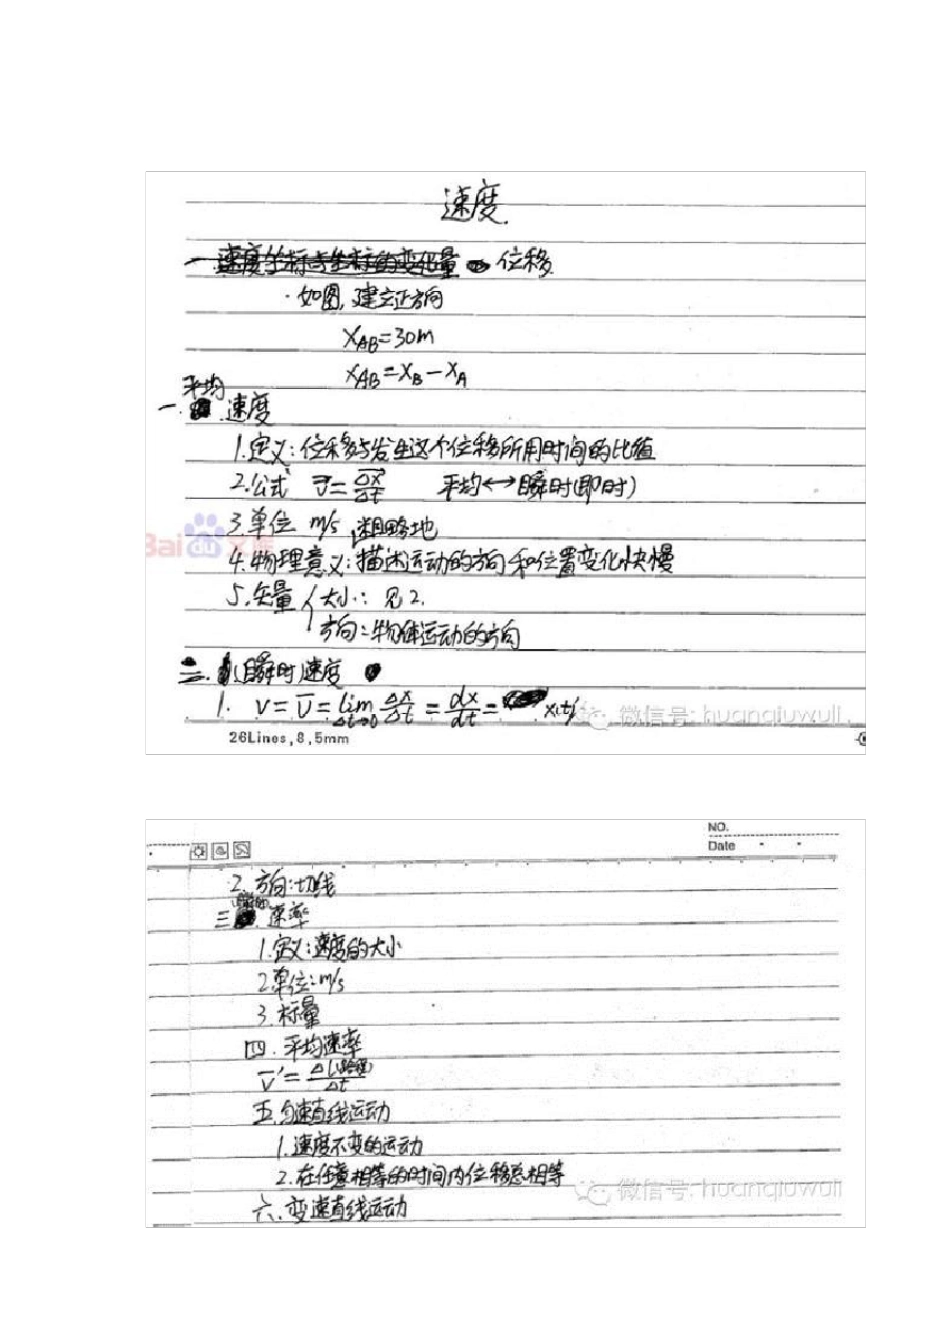 速度
一 速度坐标与坐标的变化量 位移
·如图,建立正方向
X_AB=30m
X_AB=X_B-X_A
平均
一. 速度
1.定义:位移与发生这个位移所用时间的比值
2.公式 v̄=Δx/Δt 平均↔瞬时(即时)
3.单位 m/s 粗略地
Baidu文库
4.物理意义:描述运动的方向和位置变化快慢
5.矢量{大小:见2.
方向:物体运动的方向
二. 瞬时速度
1. v=v̄=lim Δt→0 Δx/Δt=dx/dt= x(t)
微信号: huanqiuwuli
26Lines,8,5mm
NO.
Date
2.方向:切线
三 速率
1.定义:速度的大小
2.单位:m/s
3.标量
四.平均速率
v̄'=Δl(路程)/Δt
五.匀速直线运动
1.速度不变的运动
2.在任意相等的时间内位移总相等
微信号: huanqiuwuli
六.变速直线运动